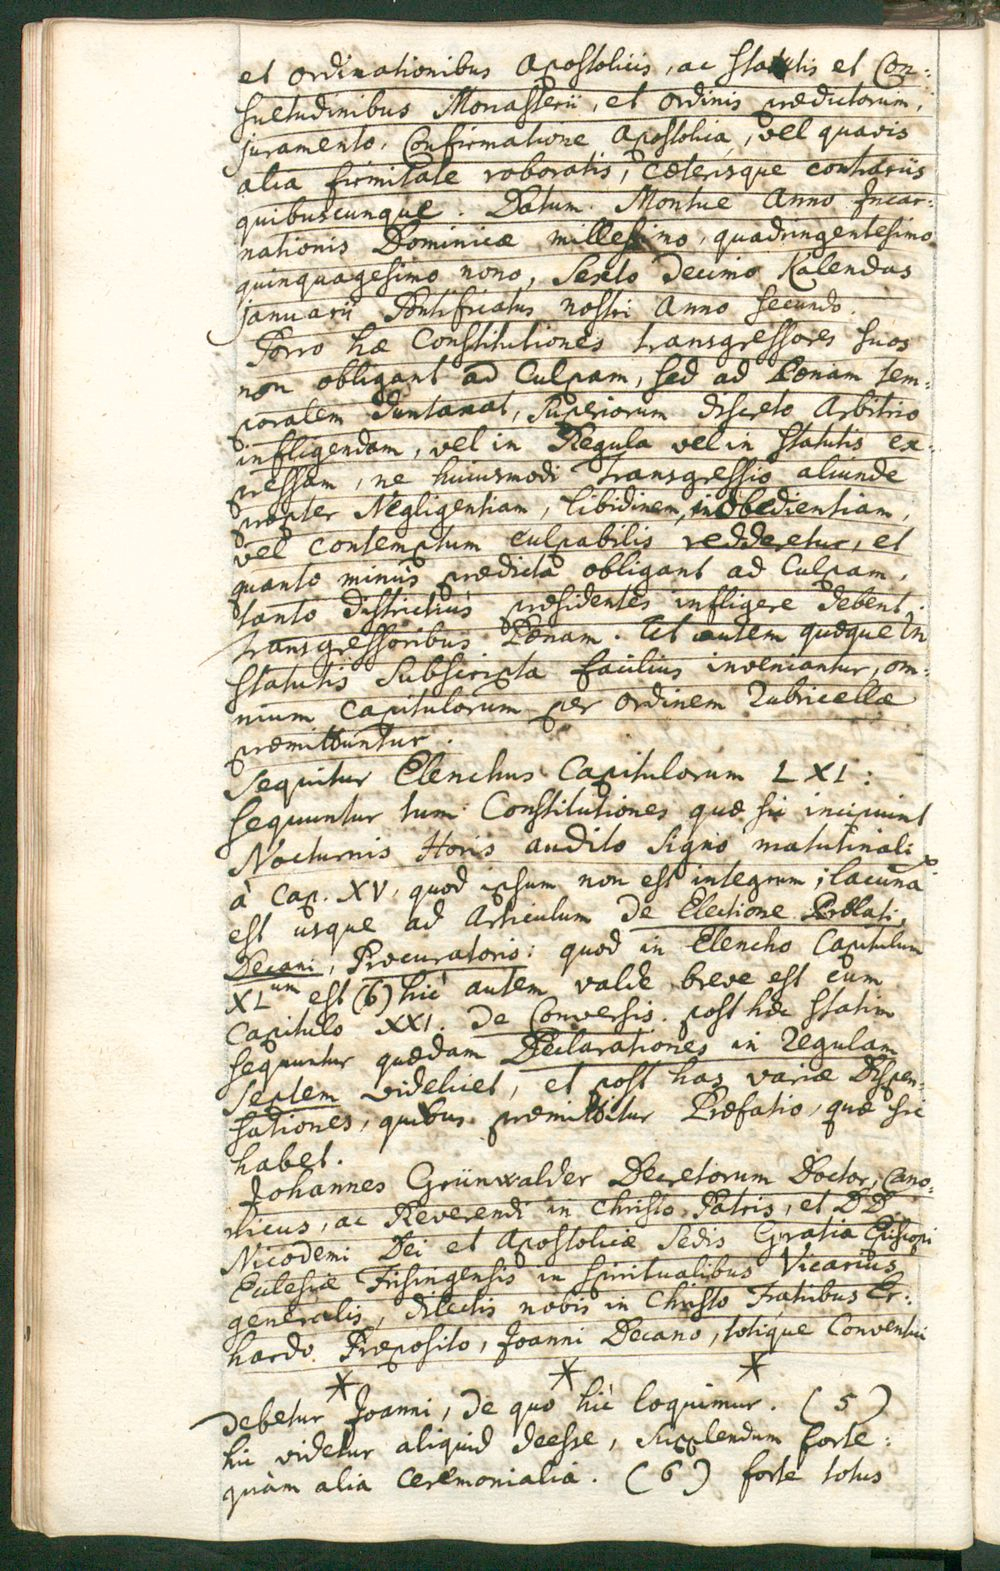 et ordinationibus Apostolicis, ac statutis et Con-
suetudinibus Monasterii, et ordinis prædictorum,
juramento, Confirmatione Apostolica, vel quavis
alia firmitate roboratis, cæterisque contrariis
quibuscunque. Datum Montuæ Anno Incar-
nationis Dominicæ millesimo, quadringentesimo
quinquagesimo nono, Sexto Decimo Kalendas
januarii Pontificatus nostri Anno secundo.
Porro hæ Constitutiones transgressores suos
non obligant ad Culpam, sed ad Pænam tem-
poralem duntaxat, Superiorum discreto Arbitrio
infligendam, vel in Regula vel in Statutis ex-
pressam, ne huiusmodi transgressio aliunde
propter Negligentiam, libidinem, inobedientiam,
vel contemptum culpabilis redderetur, et
quanto minùs prædicta obligant ad Culpam,
tanto districtiùs præsidentes infligere debent
transgressoribus Pænam. Ut autem quæque in
statutis subscripta facilius inveniantur, om-
nium capitulorum per ordinem Rubricellæ
præmittuntur.
Sequitur Elenchus Capitulorum LXI:
sequuntur tum Constitutiones quæ sic incipiunt
Nocturnis Horis audito signo matutinali
à Cap. XV, quod ipsum non est integrum; lacuna
est usque ad Articulum De Electione Prælati,
Decani, Procuratoris: quod in Elencho Capitulum
XLum est (6) hìc autem valde breve est cum
Capitulo XXI. De Conversis. post hæc statim
sequuntur quædam Declarationes in Regulam
Septem videlicet, et post has variæ Dispen-
sationes, quibus præmittitur Præfatio, quæ sic
habet.
Johannes Grünwalder Decretorum Doctor, Cano-
nicus, ac Reverendi in Christo Patris, et DD.
Nicodemi Dei et Apostolicæ Sedis Gratia Episcopi
Ecclesiæ Frisingensis in spiritualibus Vicarius
generalis, dilectis nobis in Christo Fratribus Er-
hardo Præposito, Joanni Decano, totique Conventui
* * *
debetur Joanni, de quo hìc loquimur. (5)
hic videtur aliquid deesse, supplendum forte:
quàm alia Ceremonialia. (6) forte totus